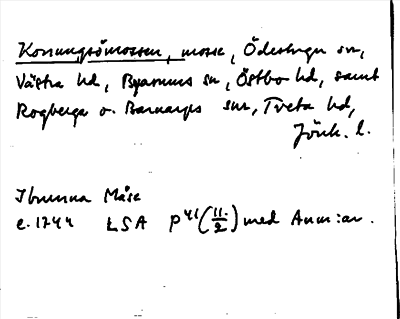 Konungsömossen, mosse, Ödestugu sn,
Västra hd, Byarums sn, Östbo hd, samt
Rogberga o. Barnarps snr, Tveta hd,
Jönk. l.
Ibmunna Måse
c. 1744 LSA P 41 (11/2) med Anm:ar.